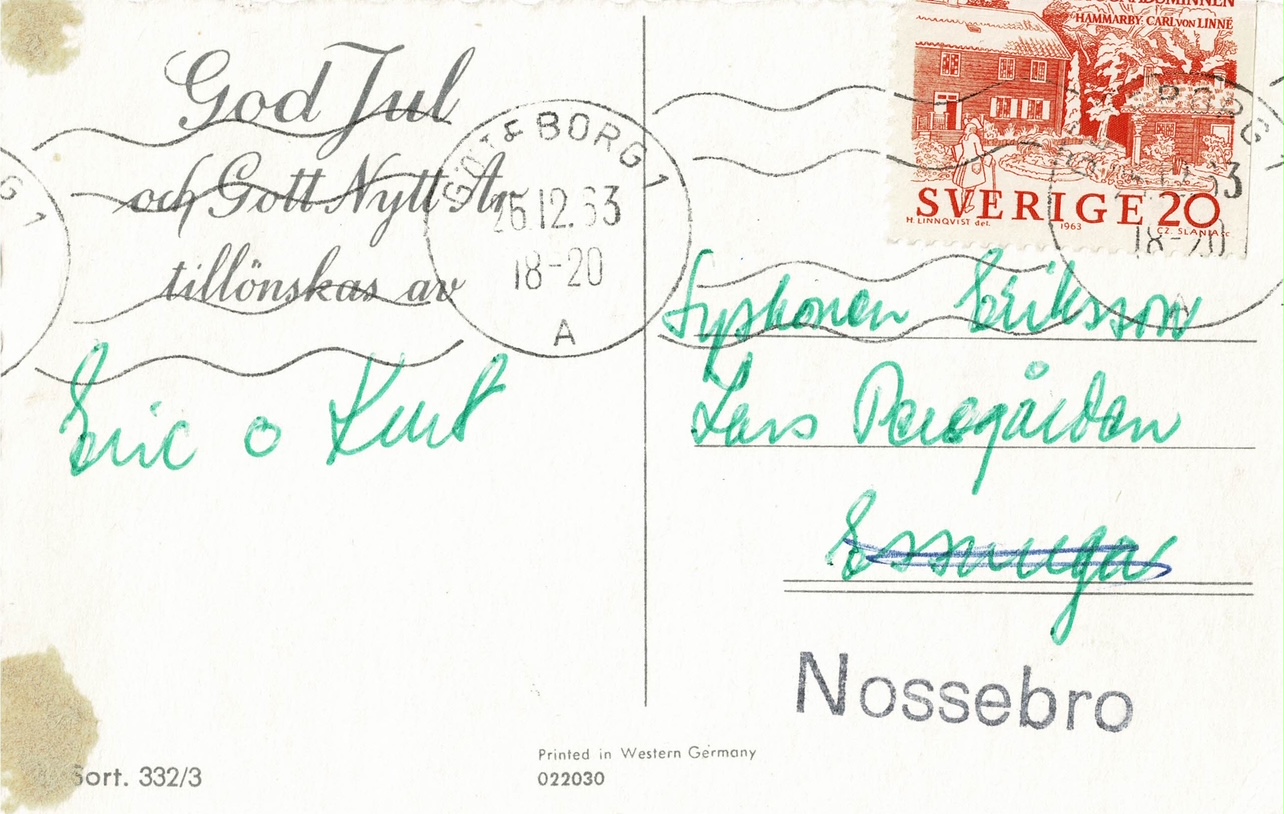 God Jul
och Gott Nytt År
tillönskas av
Eric o Kurt
G 1
GÖTEBORG 1
26.12.63
18-20
A
HAMMARBY: CARL VON LINNÉ
SVERIGE 20
H. LINNQVIST del. 1963 CZ. SLANIA sc.
BORG 1
63
18-20
A
Syskonen Eriksson
Lars Persgården
Essunga
Nossebro
Sort. 332/3
Printed in Western Germany
022030